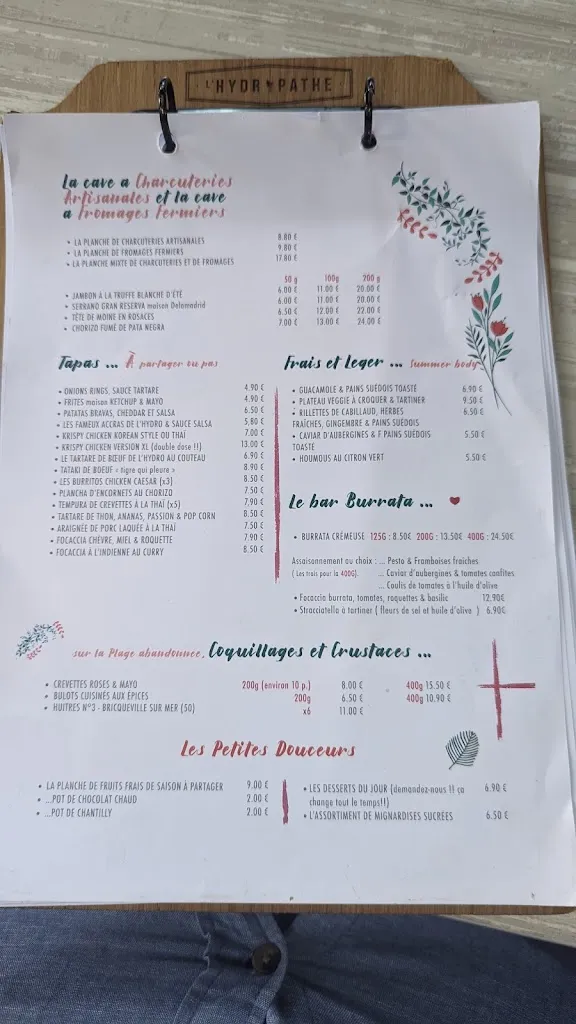 L'HYDROPATHE
La cave a Charcuteries
Artisanales et la cave
a fromages fermiers
• LA PLANCHE DE CHARCUTERIES ARTISANALES 8.80 €
• LA PLANCHE DE FROMAGES FERMIERS 9.80 €
• LA PLANCHE MIXTE DE CHARCUTERIES ET DE FROMAGES 17.80 €
50 g 100g 200 g
• JAMBON À LA TRUFFE BLANCHE D'ÉTÉ 6.00 € 11.00 € 20.00 €
• SERRANO GRAN RESERVA maison Delamadrid 6.00 € 11.00 € 20.00 €
• TÊTE DE MOINE EN ROSACES 6.50 € 12.00 € 22.00 €
• CHORIZO FUMÉ DE PATA NEGRA 7.00 € 13.00 € 24.00 €
Tapas ... À partager ou pas
• ONIONS RINGS, SAUCE TARTARE 4.90 €
• FRITES maison KETCHUP & MAYO 4.90 €
• PATATAS BRAVAS, CHEDDAR ET SALSA 6.50 €
• LES FAMEUX ACCRAS DE L'HYDRO & SAUCE SALSA 5.80 €
• KRISPY CHICKEN KOREAN STYLE OU THAÏ 7.00 €
• KRISPY CHICKEN VERSION XL (double dose !!) 13.00 €
• LE TARTARE DE BŒUF DE L'HYDRO AU COUTEAU 6.90 €
• TATAKI DE BOEUF « tigre qui pleure » 8.90 €
• LES BURRITOS CHICKEN CAESAR (x3) 8.50 €
• PLANCHA D'ENCORNETS AU CHORIZO 7.50 €
• TEMPURA DE CREVETTES À LA THAÏ (x5) 7,90 €
• TARTARE DE THON, ANANAS, PASSION & POP CORN 8.50 €
• ARAIGNÉE DE PORC LAQUÉE À LA THAÏ 7.50 €
• FOCACCIA CHÈVRE, MIEL & ROQUETTE 7.90 €
• FOCACCIA À L'INDIENNE AU CURRY 8.50 €
Frais et Leger ... Summer body
• GUACAMOLE & PAINS SUÉDOIS TOASTÉ 6.90 €
• PLATEAU VEGGIE À CROQUER & TARTINER 9.50 €
• RILLETTES DE CABILLAUD, HERBES 6.50 €
FRAÎCHES, GINGEMBRE & PAINS SUÉDOIS
• CAVIAR D'AUBERGINES & F PAINS SUÉDOIS 5.50 €
TOASTÉ
• HOUMOUS AU CITRON VERT 5.50 €
Le bar Burrata ...
• BURRATA CRÉMEUSE 125G : 8.50€ 200G : 13.50€ 400G : 24.50€
Assaisonnement au choix : ... Pesto & Framboises fraîches
( Les trois pour la 400G). ... Caviar d'aubergines & tomates confites
... Coulis de tomates à l'huile d'olive
• Focaccia burrata, tomates, roquettes & basilic 12.90€
• Stracciatella à tartiner ( fleurs de sel et huile d'olive ) 6.90€
sur la Plage abandonnee, Coquillages et Crustaces ...
• CREVETTES ROSES & MAYO 200g (environ 10 p.) 8.00 € 400g 15.50 €
• BULOTS CUISINÉS AUX ÉPICES 200g 6.50 € 400g 10.90 €
• HUITRES N°3 - BRICQUEVILLE SUR MER (50) x6 11.00 €
Les Petites Douceurs
• LA PLANCHE DE FRUITS FRAIS DE SAISON À PARTAGER 9.00 €
• ...POT DE CHOCOLAT CHAUD 2.00 €
• ...POT DE CHANTILLY 2.00 €
• LES DESSERTS DU JOUR (demandez-nous !! ca 6.90 €
change tout le temps!!)
• L'ASSORTIMENT DE MIGNARDISES SUCRÉES 6.50 €